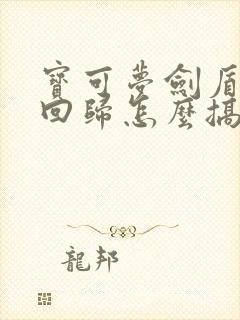 寶可夢劍盾
回歸怎麼搞
龍邦